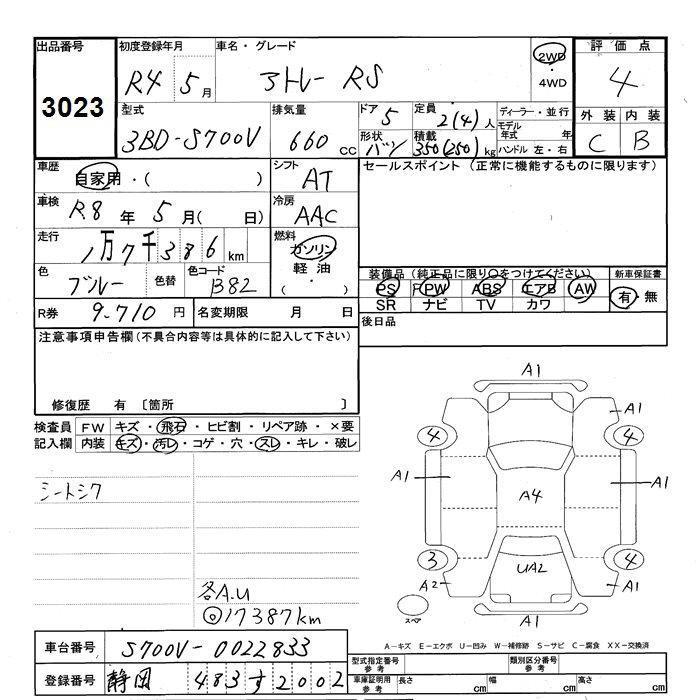 出品番号 3023
初度登録年月 R4 5月
車名・グレード アトレー RS
2WD ・ 4WD
評価点 4
型式 3BD-S700V
排気量 660 CC
ドア 5 形状 バン
定員 2(4) 人
積載 350(250) kg
ディーラー・並行
モデル年式 年
ハンドル 左・右
外装 内装
C B
車歴 自家用・( )
シフト AT
セールスポイント (正常に機能するものに限ります)
車検 R.8 年 5 月( 日)
冷房 AAC
走行 1万7千386 km
燃料 ガソリン 軽油 ( ・ )
色 ブルー 色替 色コード B82
装備品 (純正品に限り○をつけてください) 新車保証書
PS PW ABS エアB AW 有・無
SR ナビ TV カワ
R券 9.710 円 名変期限 月 日
後日品
注意事項申告欄(不具合内容等は具体的に記入して下さい)
修復歴 有 〔箇所 〕
検査員 FW キズ・飛石・ヒビ割・リペア跡・×要
記入欄 内装 キズ・汚レ・コゲ・穴・スレ・キレ・破レ
シートシワ
各A.U
◎17387km
A1
A1
4 4
A1 A4 A1
3 4
A2 UA2 A1
スペア A1
A−キズ E−エクボ U−凹み W−補修跡 S−サビ C−腐食 XX−交換済
車台番号 S700V-0022833
登録番号 静岡 483す2002
型式指定番号 参考 類別区分番号 参考
車庫証明用 参考 長さ cm 幅 cm 高さ cm